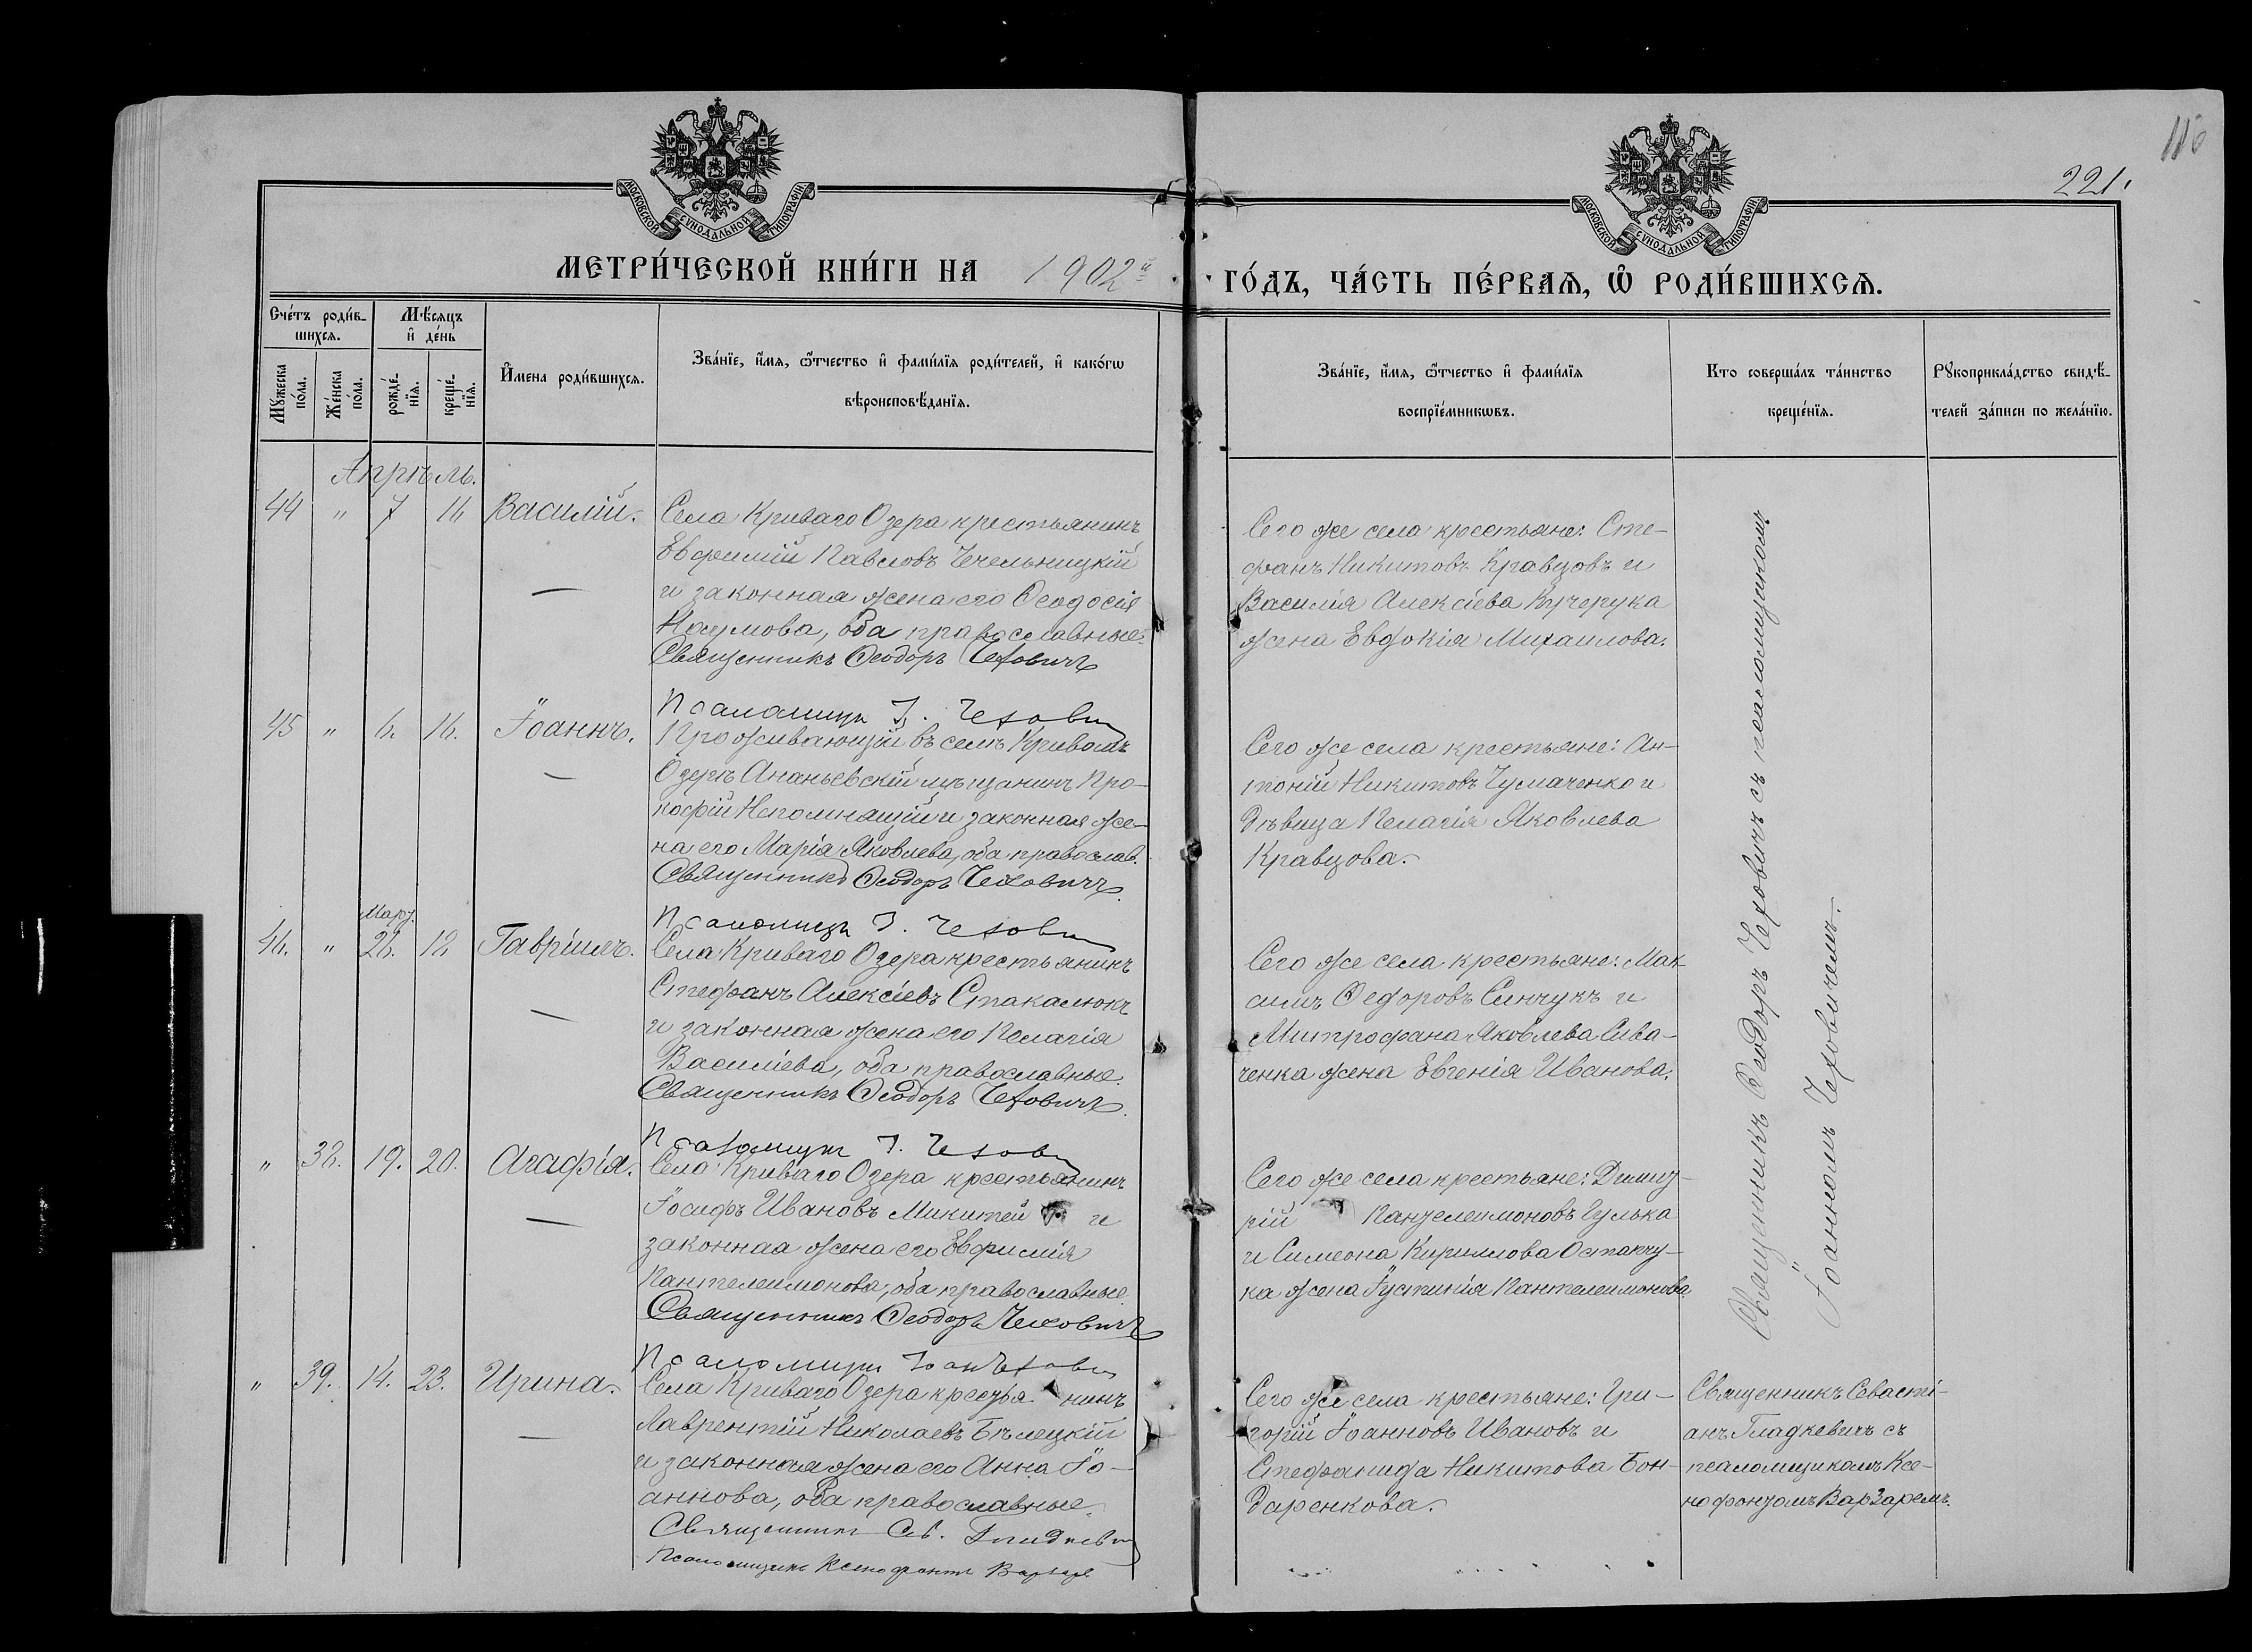 116
221.
МОСКОВСКОЙ СУНОДАЛЬНОЙ ТИПОГРАФІИ
МОСКОВСКОЙ СУНОДАЛЬНОЙ ТИПОГРАФІИ
МЕТРИ́ЧЕСКОЙ КНИ́ГИ НА 1902й
ГО́ДЪ, ЧА́СТЬ ПЕ́РВАѦ, Ѽ РОДИ́ВШИХСѦ.
Сче́тъ роди́в-
шихсѧ.
Мѣ́сѧцъ
и҆ де́нь
Мꙋ́жеска
по́ла.
Же́нска
по́ла.
рожде́-
нїѧ.
креще́-
нїѧ.
И҆мена роди́вшихсѧ.
Зва́нїе, и҆́мѧ, ѻ҆́тчество и҆ фами́лїѧ роди́телей, и҆ како́гѡ
вѣроисповѣ́данїѧ.
Зва́нїе, и҆́мѧ, ѻ҆́тчество и҆ фами́лїѧ
воспрїе́мникѡвъ.
Кто соверша́лъ та́инство
креще́нїѧ.
Рꙋкоприкла́дство свидѣ́-
телей за́писи по жела́нїю.
Апрѣль.
44 " 7 16 Василій.
Села Криваго Озера крестьянинъ
Евфимій Павловъ Чечельницкій
и законная жена его Ѳеодосія
Наумова, оба православные.
Священникъ Ѳеодоръ Чеховичъ
Псаломщик І. Чехович
Сего же села крестьяне: Сте-
фанъ Никитовъ Кравцовъ и
Василія Алексіева Кучерука
жена Евдокія Михаилова.
45 " 6. 16. Іоаннъ.
Проживающій въ селѣ Кривомъ
Озерѣ Ананьевскій мѣщанинъ Про-
кофій Непомнящій и законная же-
на его Марія Яковлева, оба православ.
Священникъ Ѳеодоръ Чеховичъ
Псаломщик І. Чехович
Сего же села крестьяне: Ан-
тоній Никитовъ Чумаченко и
дѣвица Пелагія Яковлева
Кравцова.
Март.
46. " 26. 18 Гавріилъ.
Села Криваго Озера крестьянинъ
Стефанъ Алексіевъ Стакалюкъ
и законная жена его Пелагія
Василіева, оба православные.
Священникъ Ѳеодоръ Чеховичъ.
Псаломщик І. Чехович
Сего же села крестьяне: Мак-
симъ Ѳедоровъ Синчукъ и
Митрофана Яковлева Сива-
ченка жена Евгенія Иванова.
" 38. 19. 20. Агафія.
Села Криваго Озера крестьянинъ
Іосифъ Ивановъ Микитей и
законная жена его Евфимія
Пантелеимонова, оба православные.
Священникъ Ѳеодоръ Чеховичъ
Псаломщик Іоан Чехович
Сего же села крестьяне: Димит-
рій Пантелеимоновъ Гулька
и Симеона Кириллова Остапчу-
ка жена Іустинія Пантелеимонова
Священникъ Ѳеодоръ Чеховичъ съ псаломщикомъ
Іоанномъ Чеховичемъ.
" 39. 14. 23. Ирина.
Села Криваго Озера крестьянинъ
Лаврентій Николаевъ Бѣлецкій
и законная жена его Анна Іо-
аннова, оба православные.
Священник Сев. Гладкевич
Псаломщикъ Ксенофонтъ Варзаръ
Сего же села крестьяне: Гри-
горій Іоанновъ Ивановъ и
Стефанида Никитова Бон-
даренкова.
Священникъ Севасті-
анъ Гладкевичъ съ
псаломщикомъ Ксе-
нофонтомъ Варзаремъ.